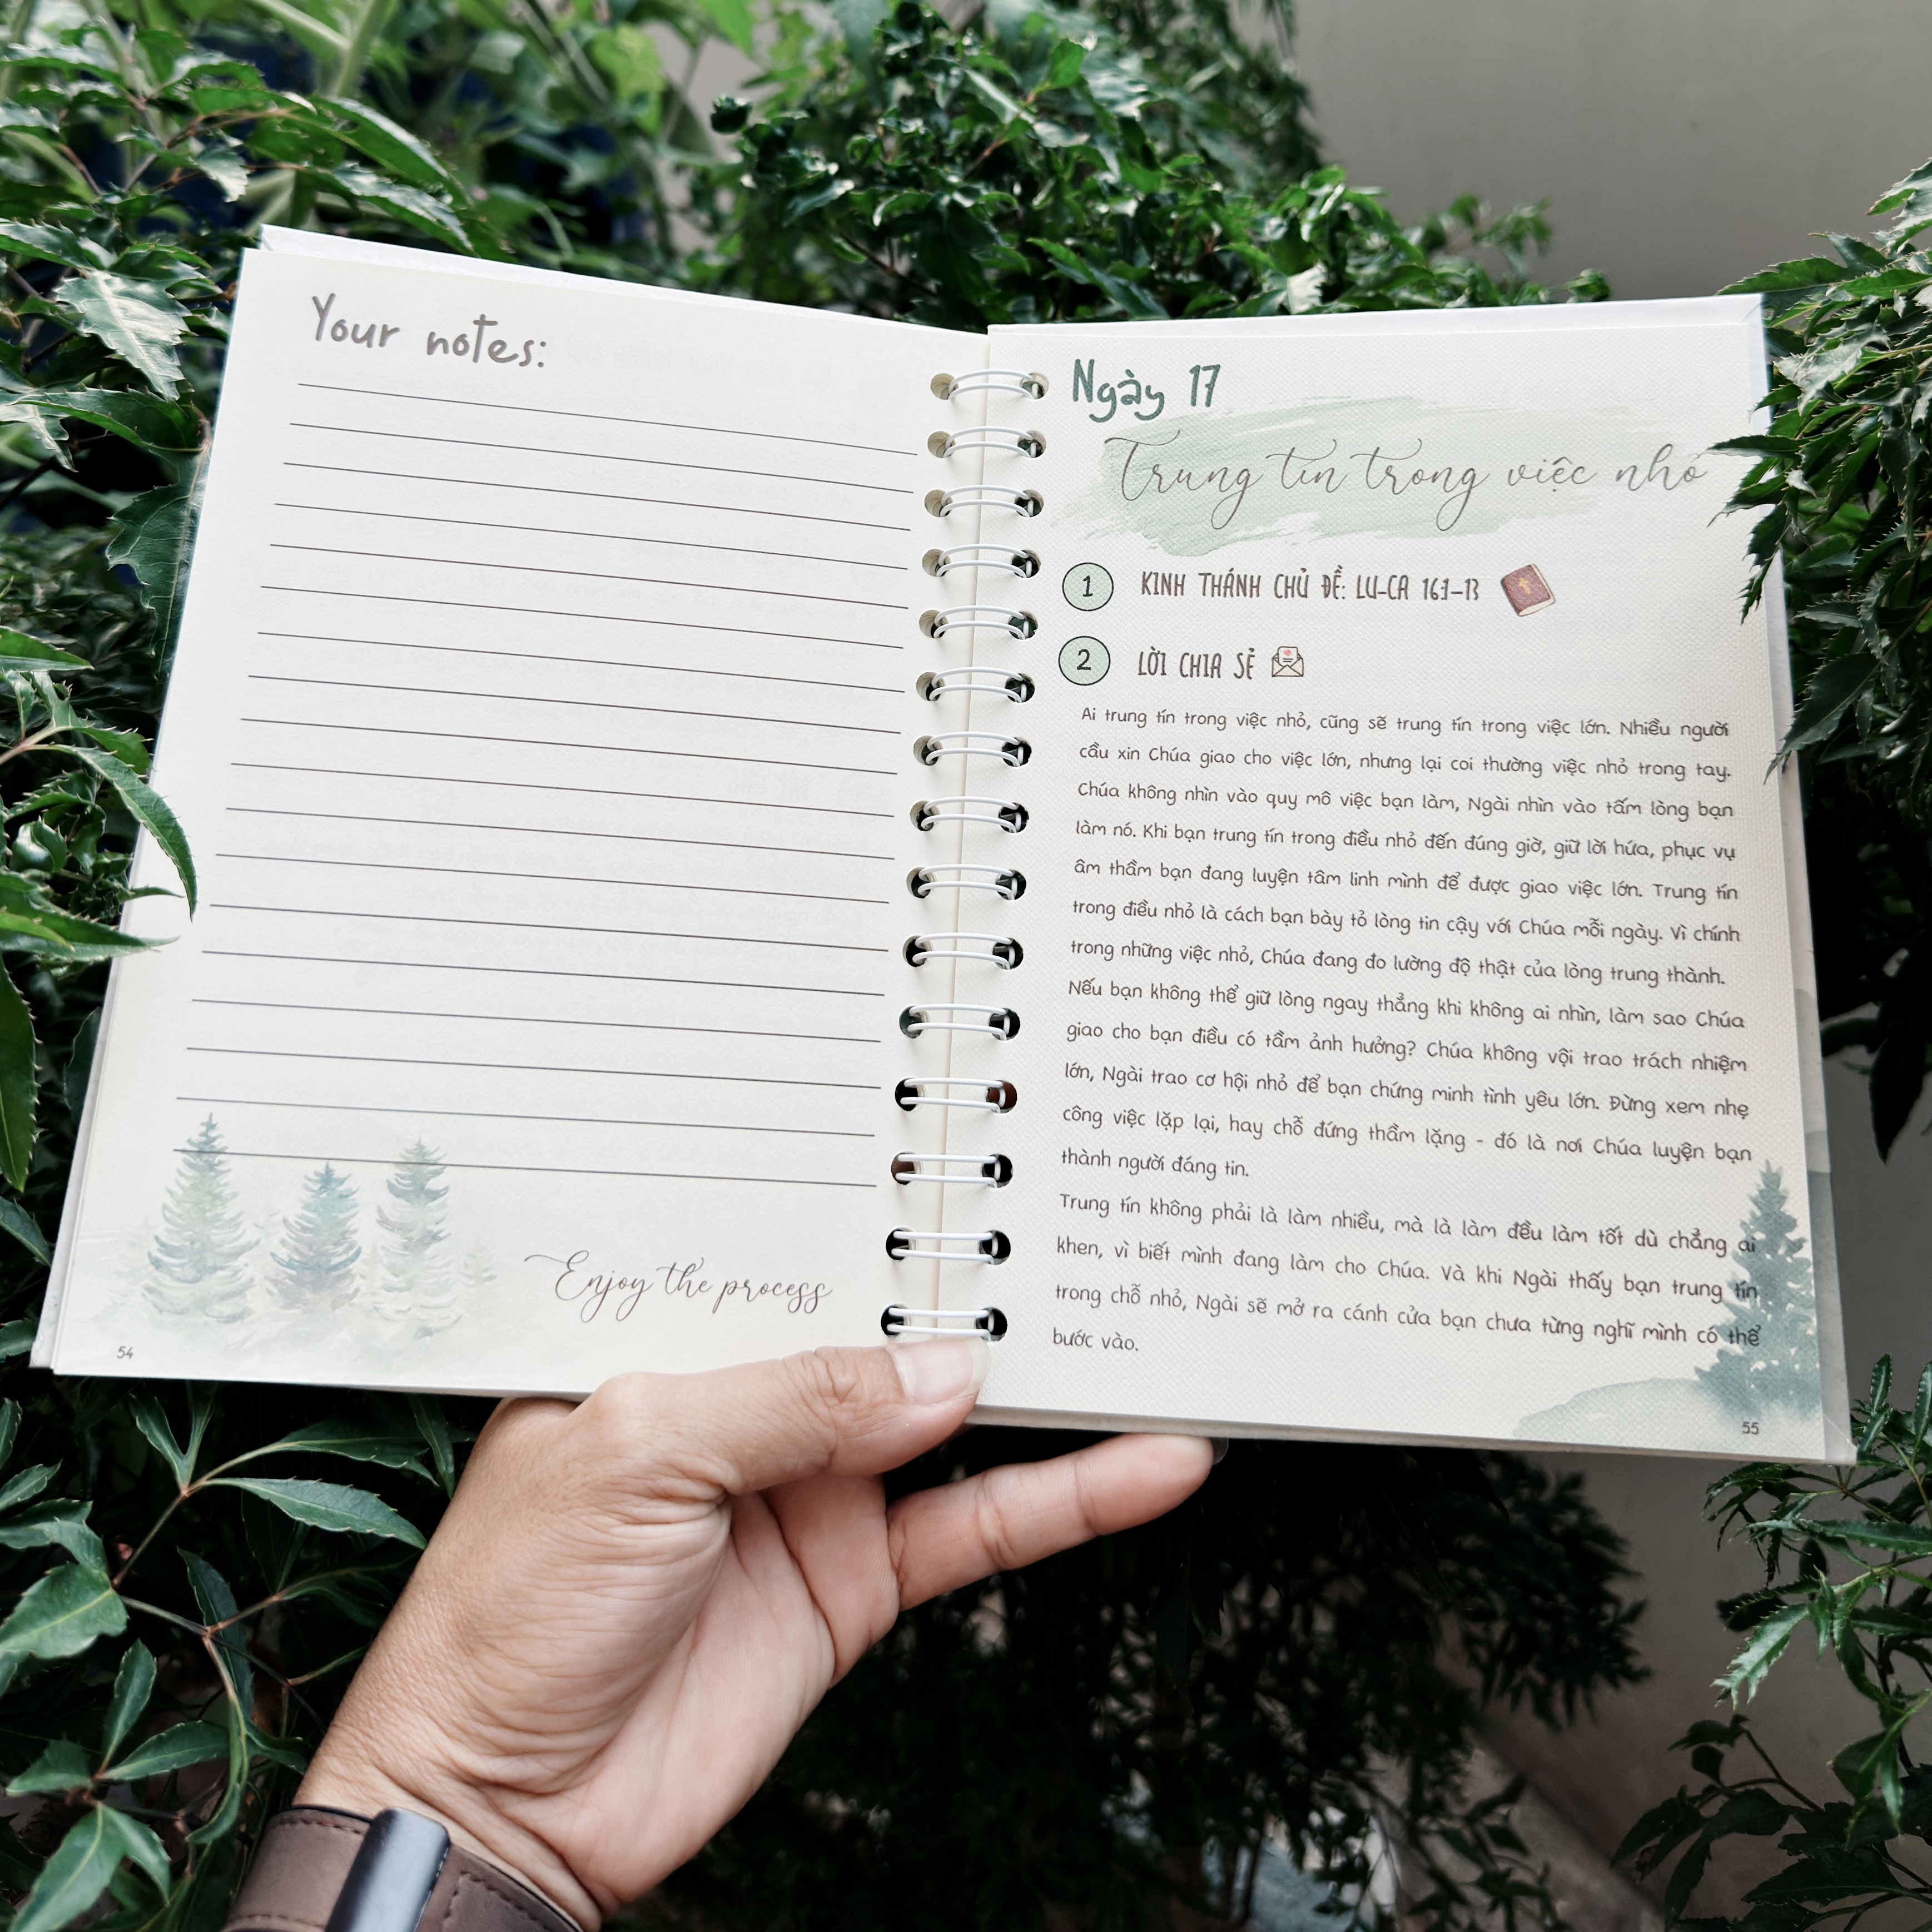 Your notes:
Enjoy the process
54
Ngày 17
Trung tín trong việc nhỏ
1 KINH THÁNH CHỦ ĐỀ: LU-CA 16:1-13
2 LỜI CHIA SẺ
Ai trung tín trong việc nhỏ, cũng sẽ trung tín trong việc lớn. Nhiều người
cầu xin Chúa giao cho việc lớn, nhưng lại coi thường việc nhỏ trong tay.
Chúa không nhìn vào quy mô việc bạn làm, Ngài nhìn vào tấm lòng bạn
làm nó. Khi bạn trung tín trong điều nhỏ đến đúng giờ, giữ lời hứa, phục vụ
âm thầm bạn đang luyện tâm linh mình để được giao việc lớn. Trung tín
trong điều nhỏ là cách bạn bày tỏ lòng tin cậy với Chúa mỗi ngày. Vì chính
trong những việc nhỏ, Chúa đang đo lường độ thật của lòng trung thành.
Nếu bạn không thể giữ lòng ngay thẳng khi không ai nhìn, làm sao Chúa
giao cho bạn điều có tầm ảnh hưởng? Chúa không vội trao trách nhiệm
lớn, Ngài trao cơ hội nhỏ để bạn chứng minh tình yêu lớn. Đừng xem nhẹ
công việc lặp lại, hay chỗ đứng thầm lặng - đó là nơi Chúa luyện bạn
thành người đáng tin.
Trung tín không phải là làm nhiều, mà là làm đều làm tốt dù chẳng ai
khen, vì biết mình đang làm cho Chúa. Và khi Ngài thấy bạn trung tín
trong chỗ nhỏ, Ngài sẽ mở ra cánh cửa bạn chưa từng nghĩ mình có thể
bước vào.
55